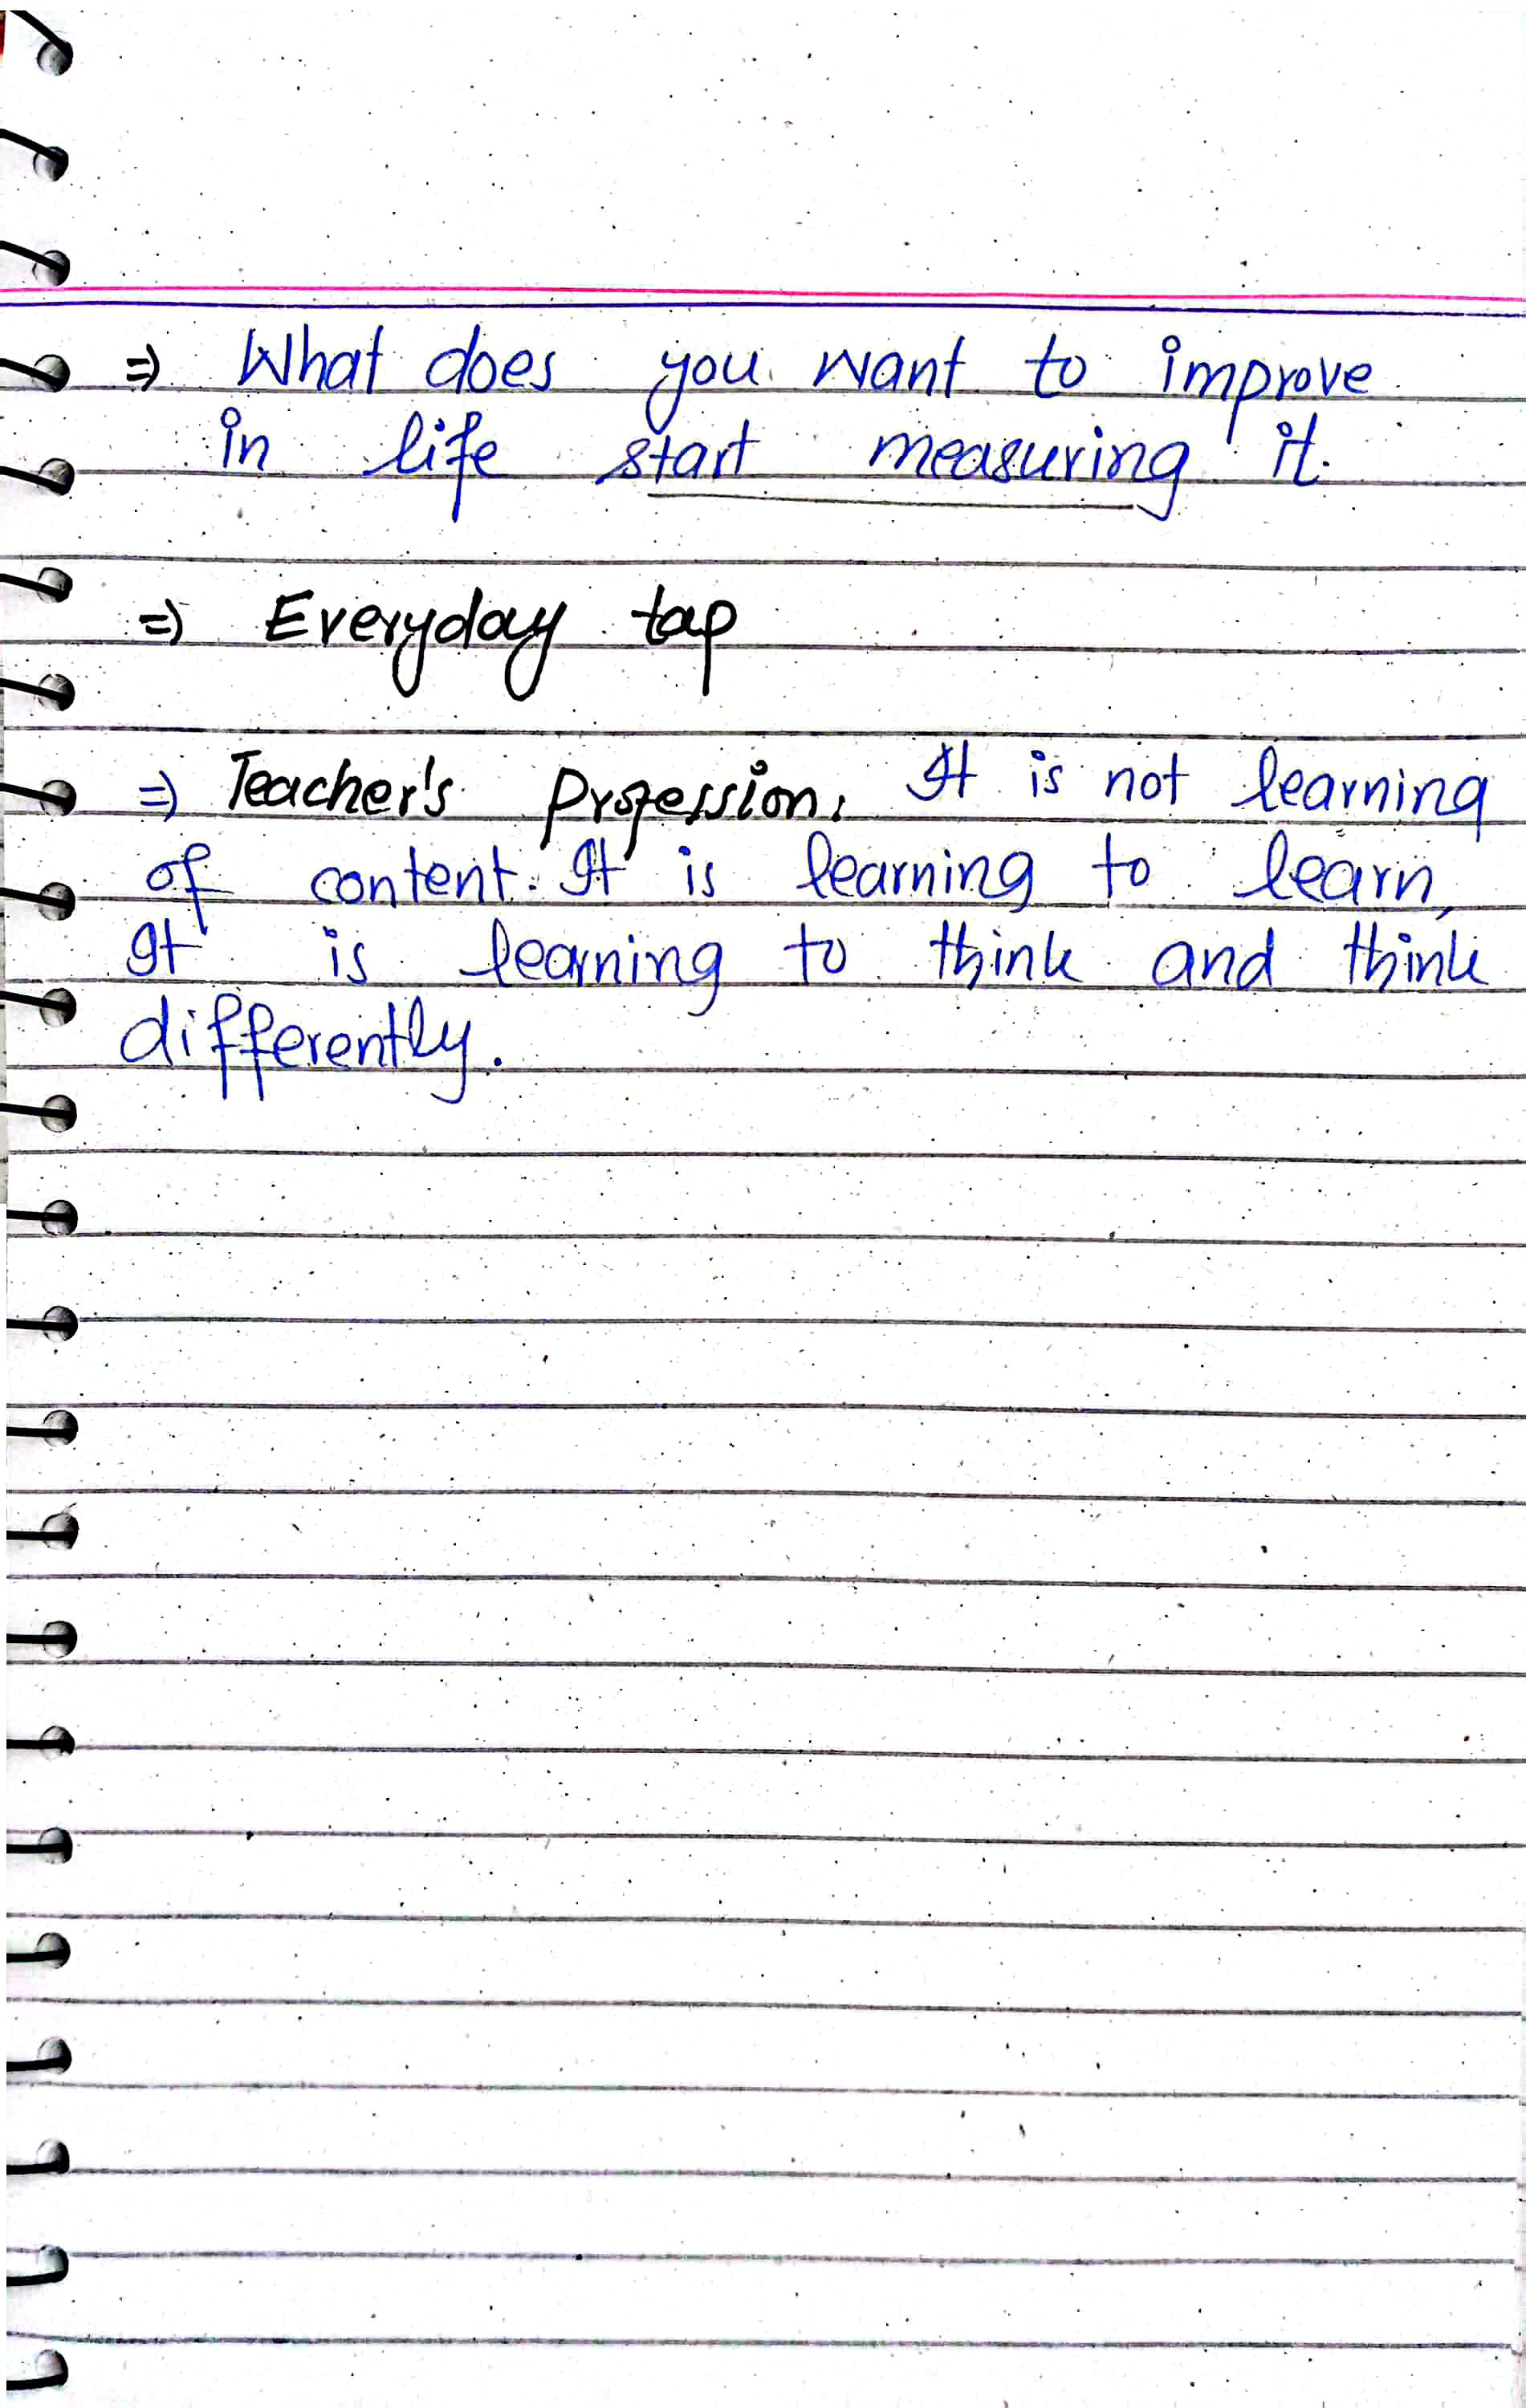 ⇒ What does you want to improve
in life start measuring it.
⇒ Everyday tap
⇒ Teacher's Profession. It is not learning
of content. It is learning to learn,
It is learning to think and think
differently.